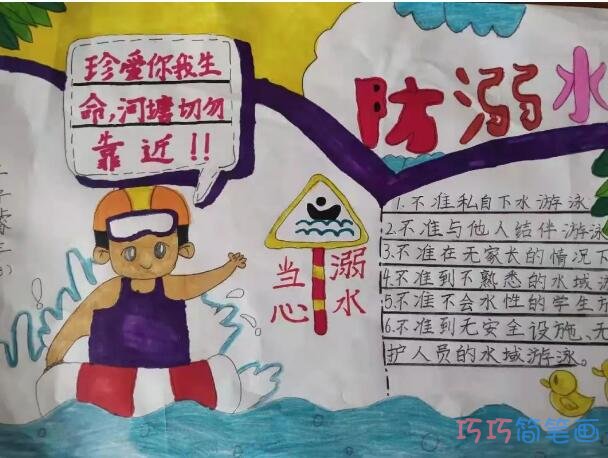 珍爱你我生
命,河塘切勿
靠近!!
防溺水
当心
溺水
1.不准私自下水游泳
2.不准与他人结伴游泳
3.不准在无家长的情况下
4.不准到不熟悉的水域游
5.不准不会水性的学生
6.不准到无安全设施、无
护人员的水域游泳。
巧巧简笔画